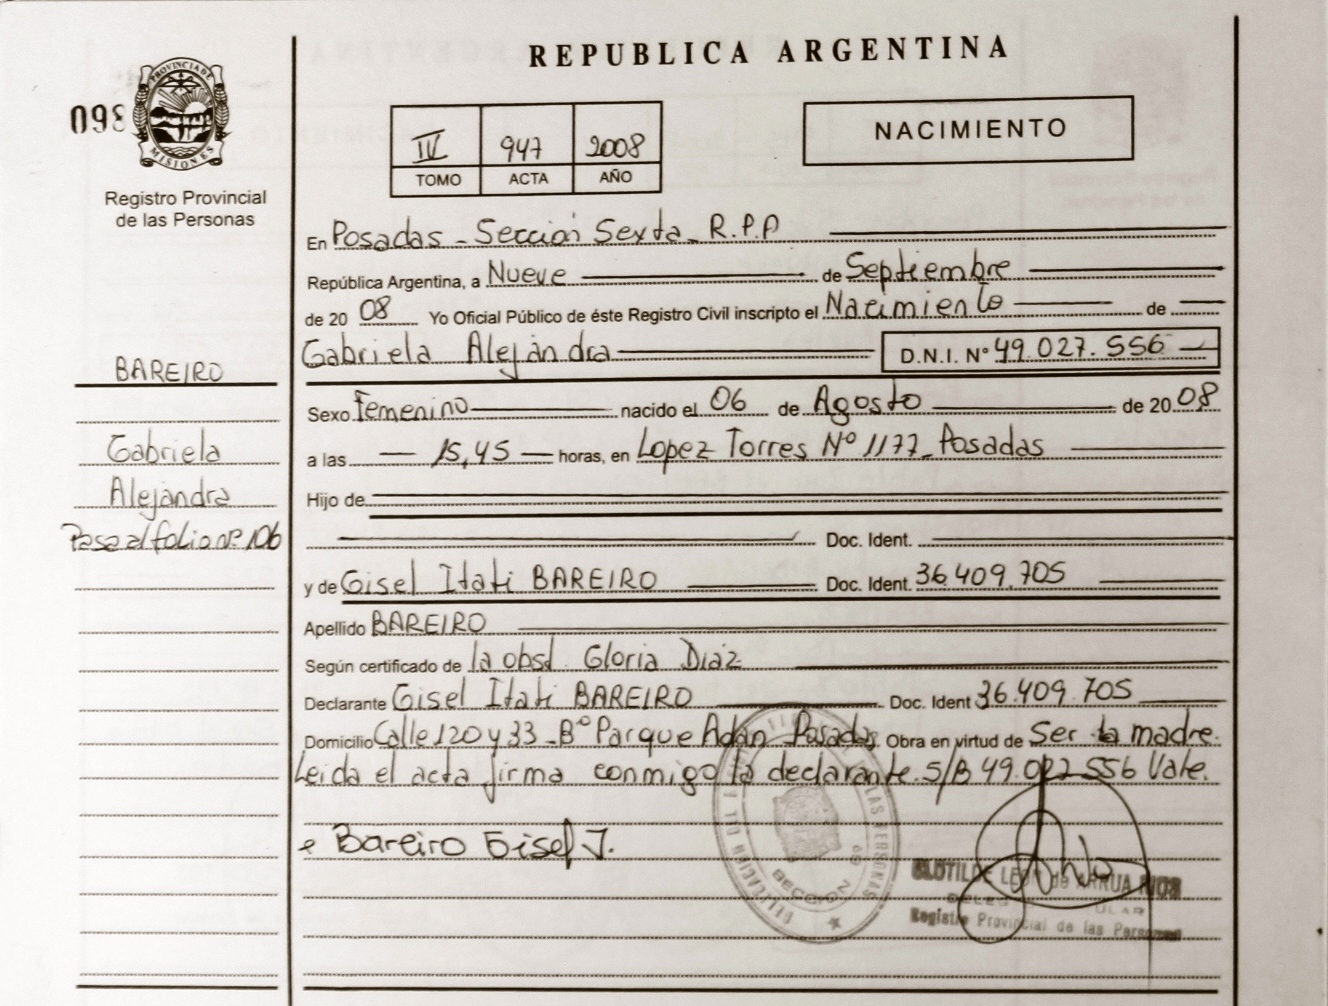 REPUBLICA ARGENTINA
098
PROVINCIA DE
MISIONES
Registro Provincial
de las Personas
IV 947 2008
TOMO ACTA AÑO
NACIMIENTO
En Posadas - Sección Sexta - R.P.P
República Argentina, a Nueve de Septiembre
de 20 08 Yo Oficial Público de éste Registro Civil inscripto el Nacimiento de
Gabriela Alejandra D.N.I. Nº 49.027.556
BAREIRO
Gabriela
Alejandra
Pasa al folio nº 106
Sexo Femenino nacido el 06 de Agosto de 20 08
a las 15,45 horas, en Lopez Torres Nº 1177 - Posadas
Hijo de
Doc. Ident.
y de Gisel Itati BAREIRO Doc. Ident. 36.409.705
Apellido BAREIRO
Según certificado de la obst. Gloria Diaz
Declarante Gisel Itati BAREIRO Doc. Ident 36.409.705
Domicilio Calle 120 y 33 - Bº Parque Adan Posadas. Obra en virtud de Ser la madre.
Leida el acta firma conmigo la declarante. S/B 49.027.556 Vale.
Bareiro Gisel I.
DELEGACION DE LAS PERSONAS
SECCION
CLOTILDE LEON de ARRUA
Registro Provincial de las Personas